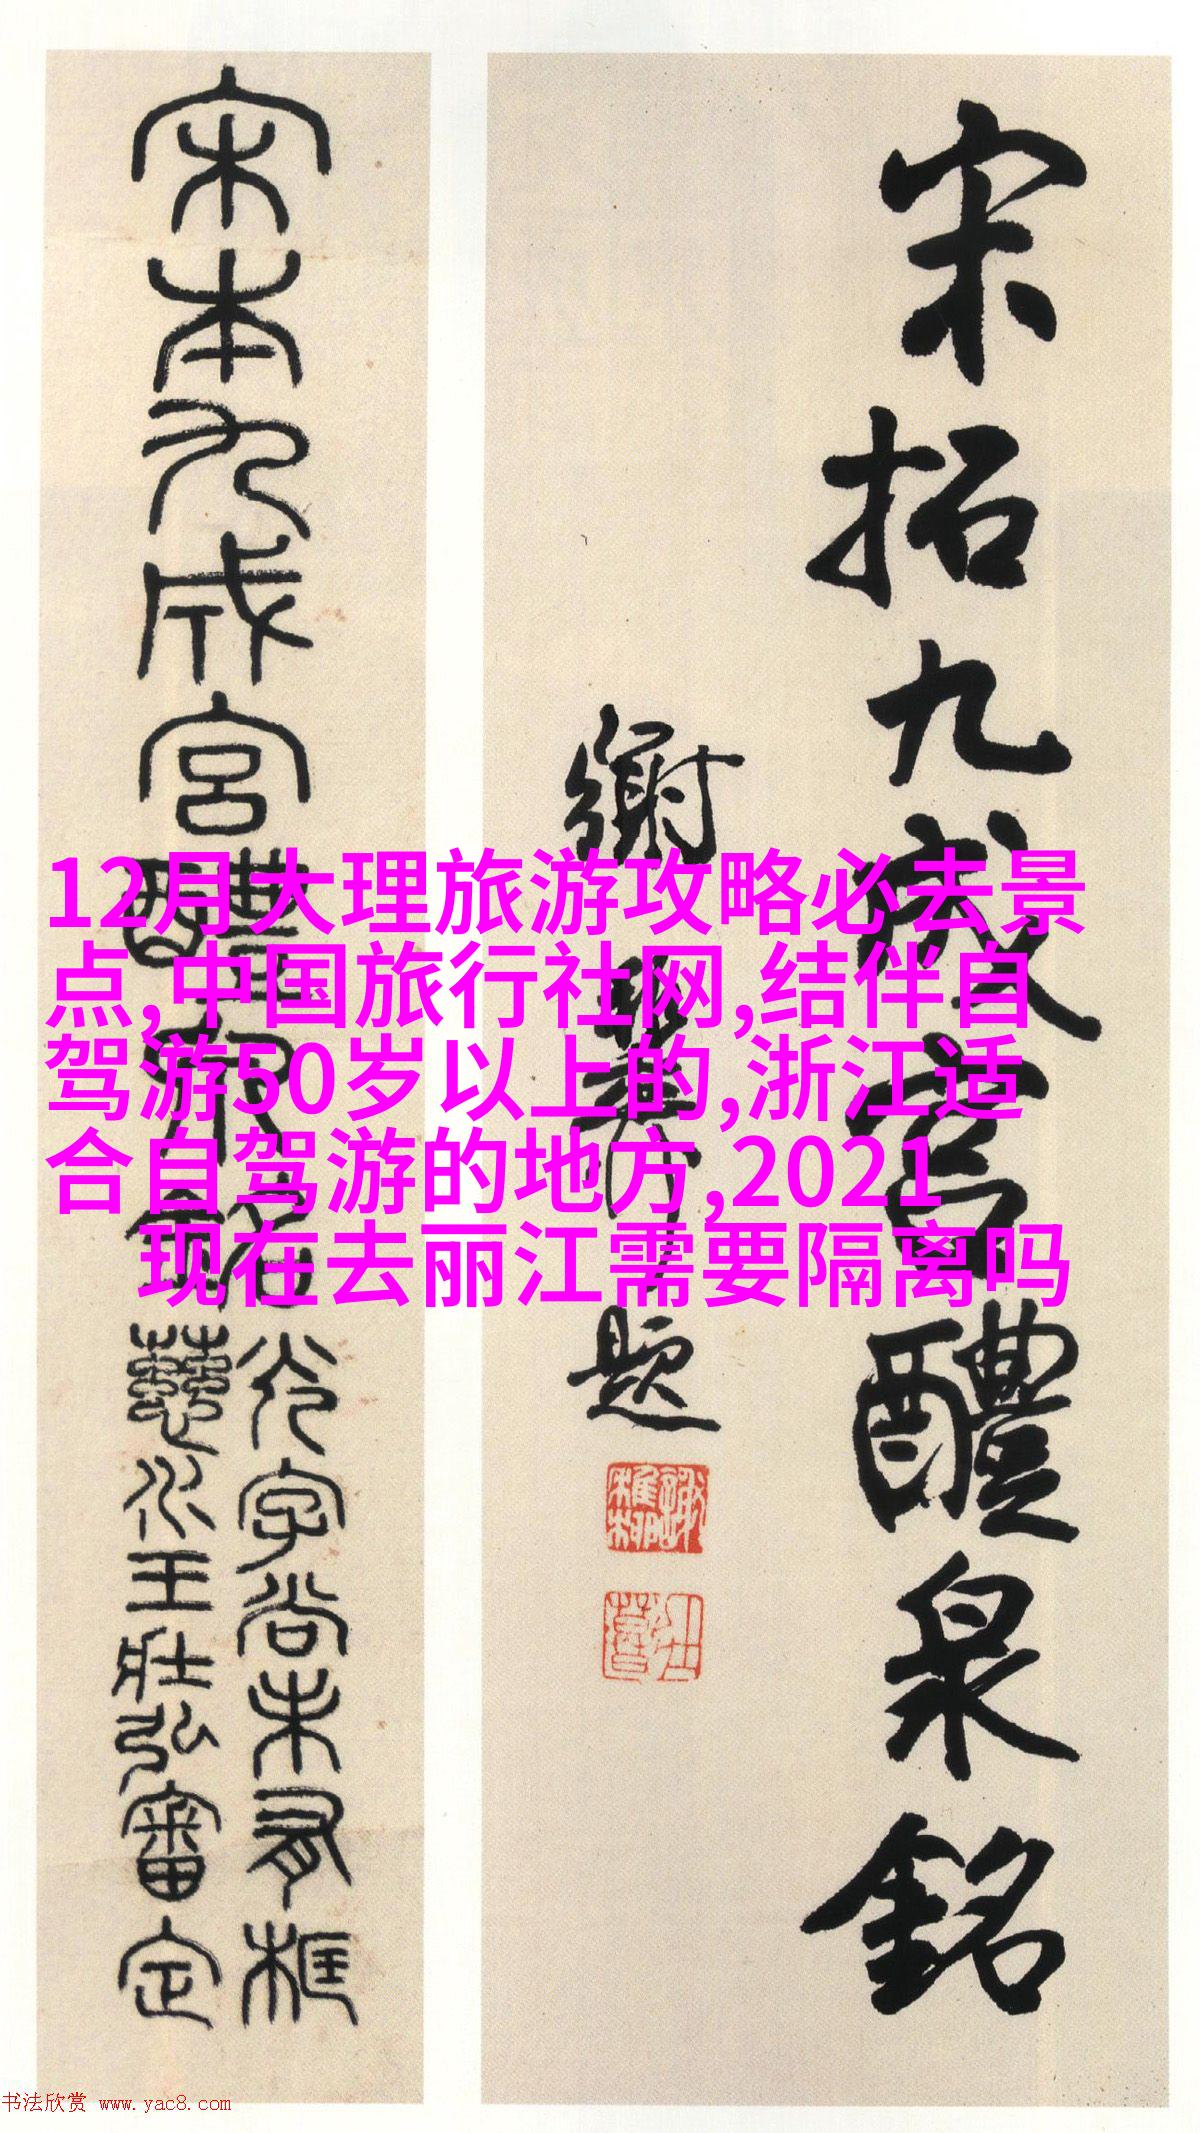 宋拓九成宫醴泉銘
題
宋本九成宮醴泉銘
字尚未有框
王壯弘審定
12月大理旅游攻略必去景
点,中国旅行社网,结伴自
驾游50岁以上的,浙江适
合自驾游的地方,2021
现在去丽江需要隔离吗
书法欣赏 www.yac8.com